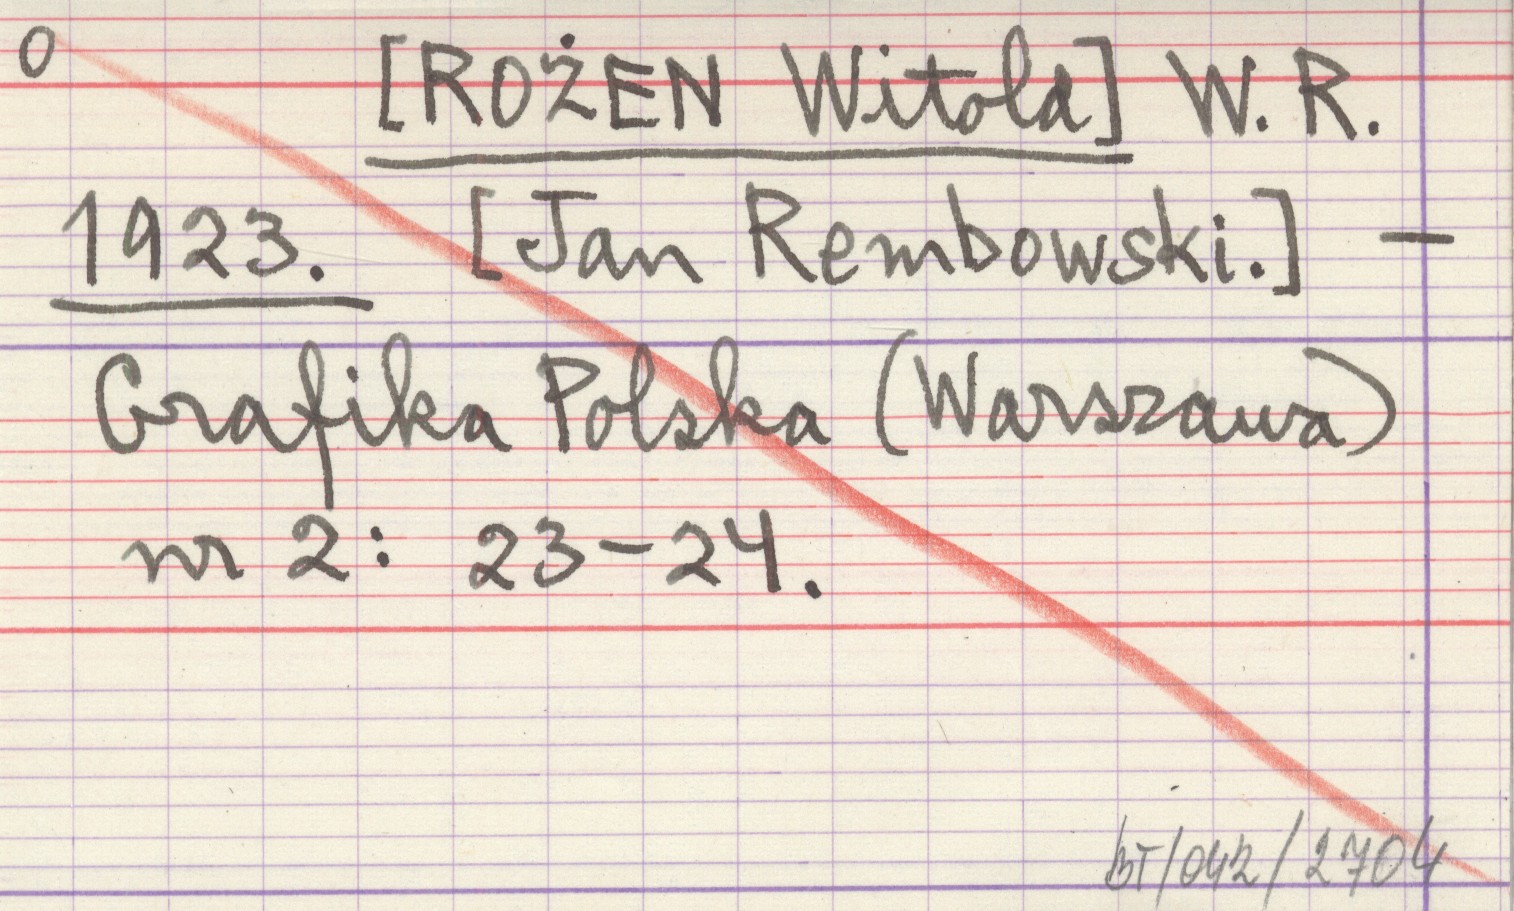 O [ROŻEN Witold] W. R.
1923. [Jan Rembowski.] —
Grafika Polska (Warszawa)
nr 2: 23-24.
BT/042/2704